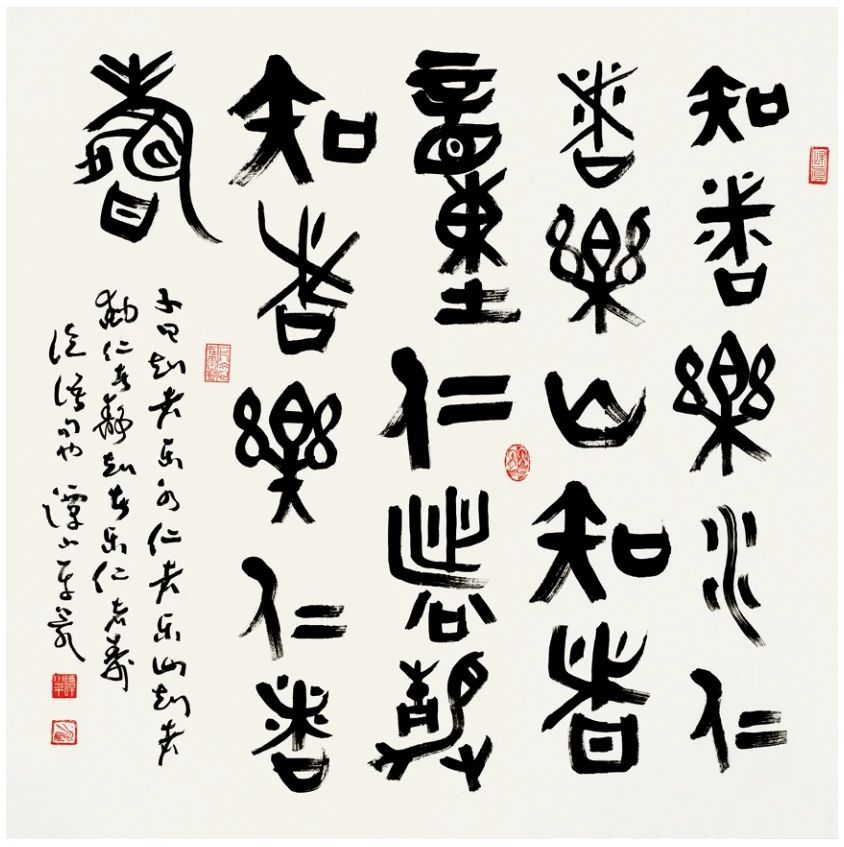 知者樂水仁
者樂山知者
動仁者靜
知者樂仁者
壽
子曰知者乐水仁者乐山知者
動仁者静知者乐仁者寿
论语句也